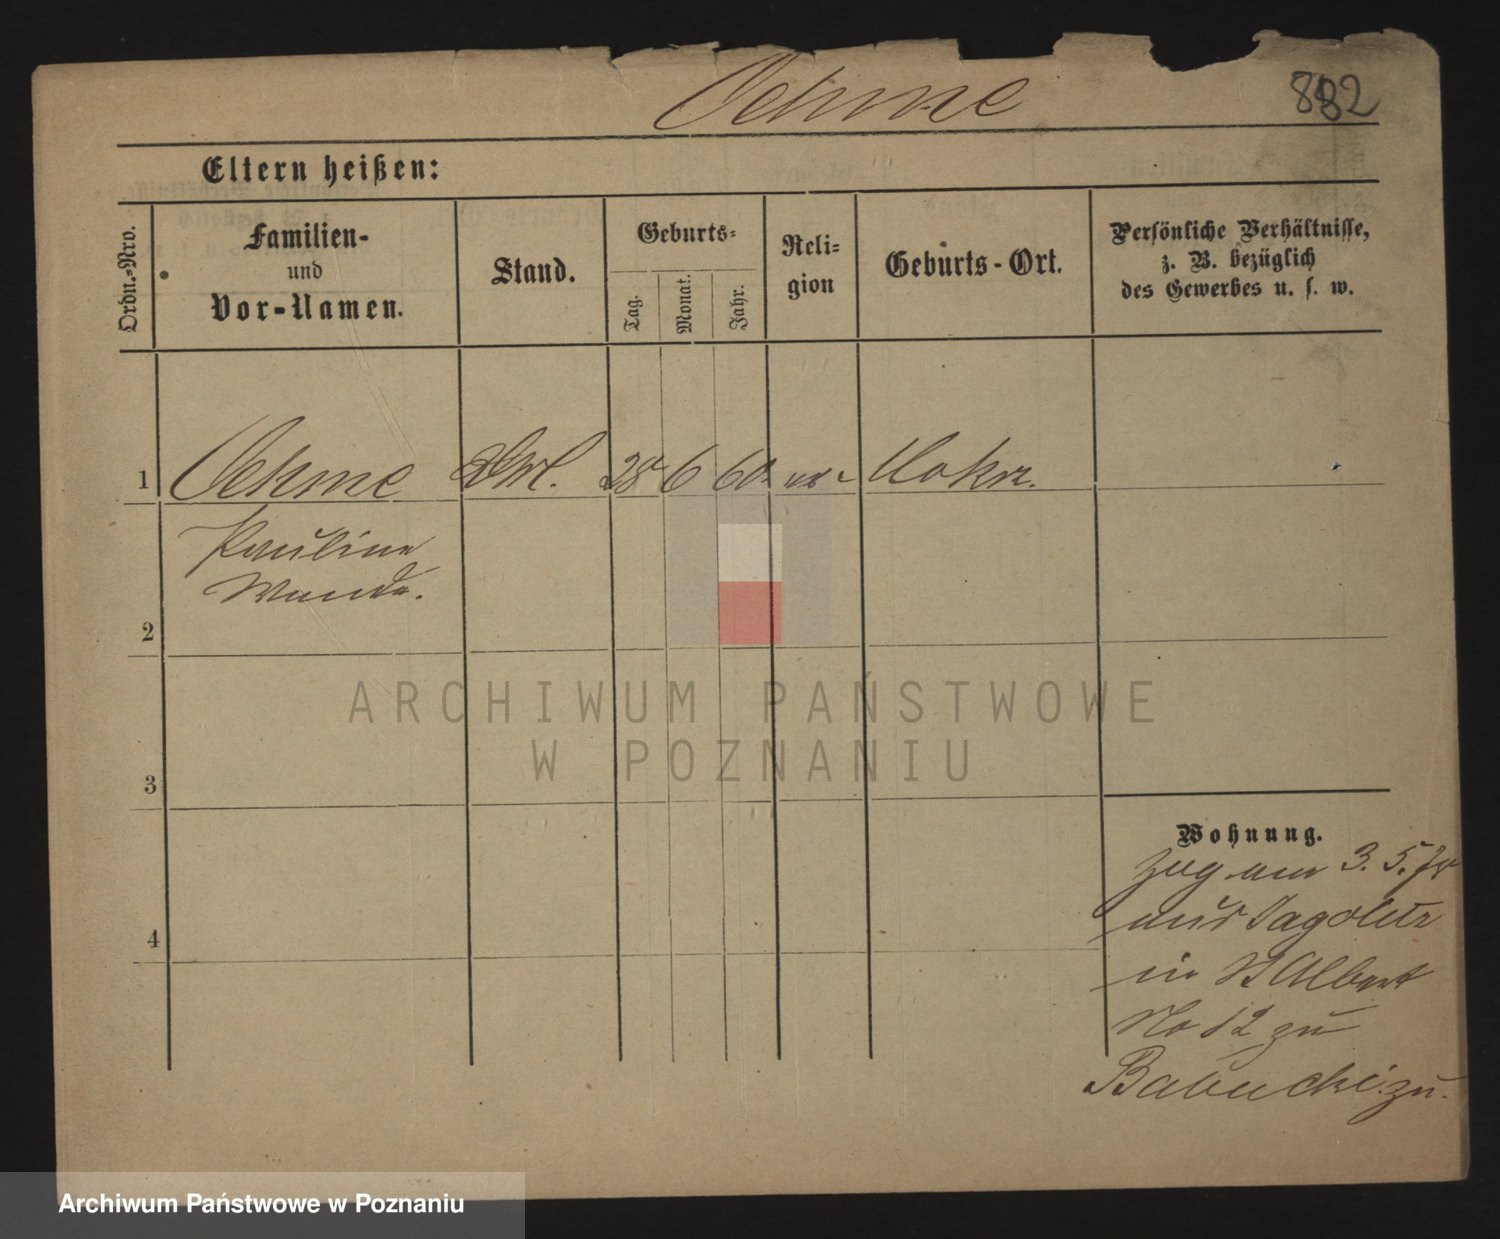 Oehme
882
Eltern heißen:
Ordn.-Nro.
Familien-
und
Vor-Namen.
Stand.
Geburts-
Tag.
Monat.
Jahr.
Reli-
gion
Geburts-Ort.
Persönliche Verhältnisse,
z. B. bezüglich
des Gewerbes u. s. w.
1 Oehme 28 6 60
Pauline
Wanda.
2
3
4
Wohnung.
zog am 3. 5.
aus
in St Albert
No 12 zu
zu.
ARCHIWUM PAŃSTWOWE
W POZNANIU
Archiwum Państwowe w Poznaniu